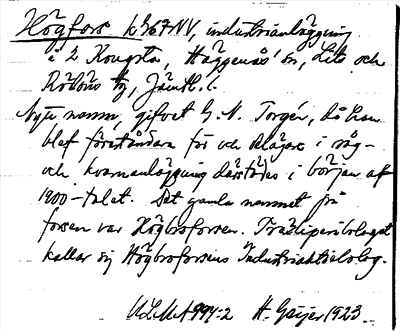 Högfors k367NV, industrianläggning
i 2 Kougsta, Häggenås' sn, Lits och
Rödöns tg, Jämtl. l.
Nytt namn, gifvet G. N. Torgén, då han
blef föreståndare för och delägare i såg-
och kvarnanläggning därstädes i början af
1900-talet. Det gamla namnet på
forsen var Högbroforsen. Träsliperibolaget
kallar sig Högbroforsens Industriaktiebolag.
ULMA 994:2 H. Geijer 1923.